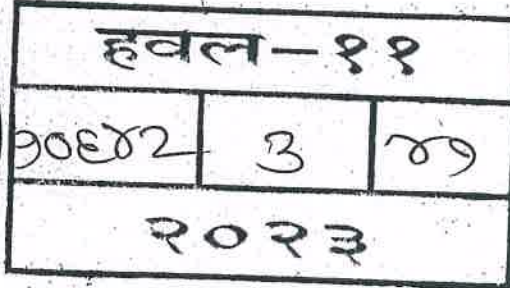 हवल-११
१०६४२ ३ ४१
२०२३